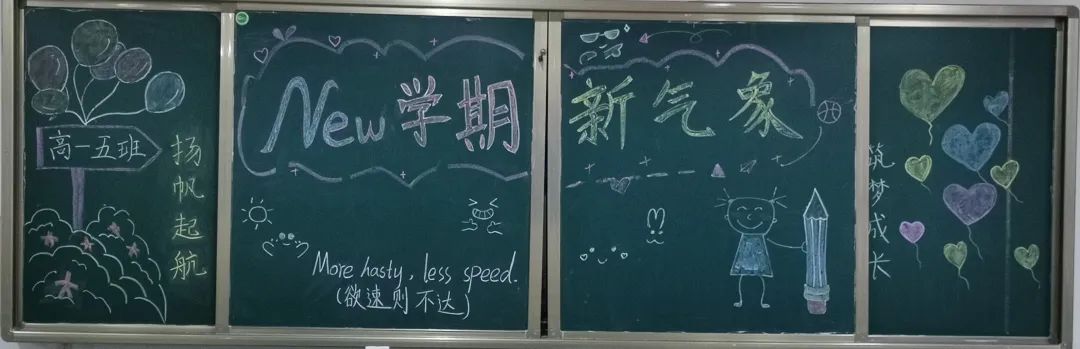 高一五班
扬帆起航
New学期
More hasty, less speed.
(欲速则不达)
新气象
筑梦成长